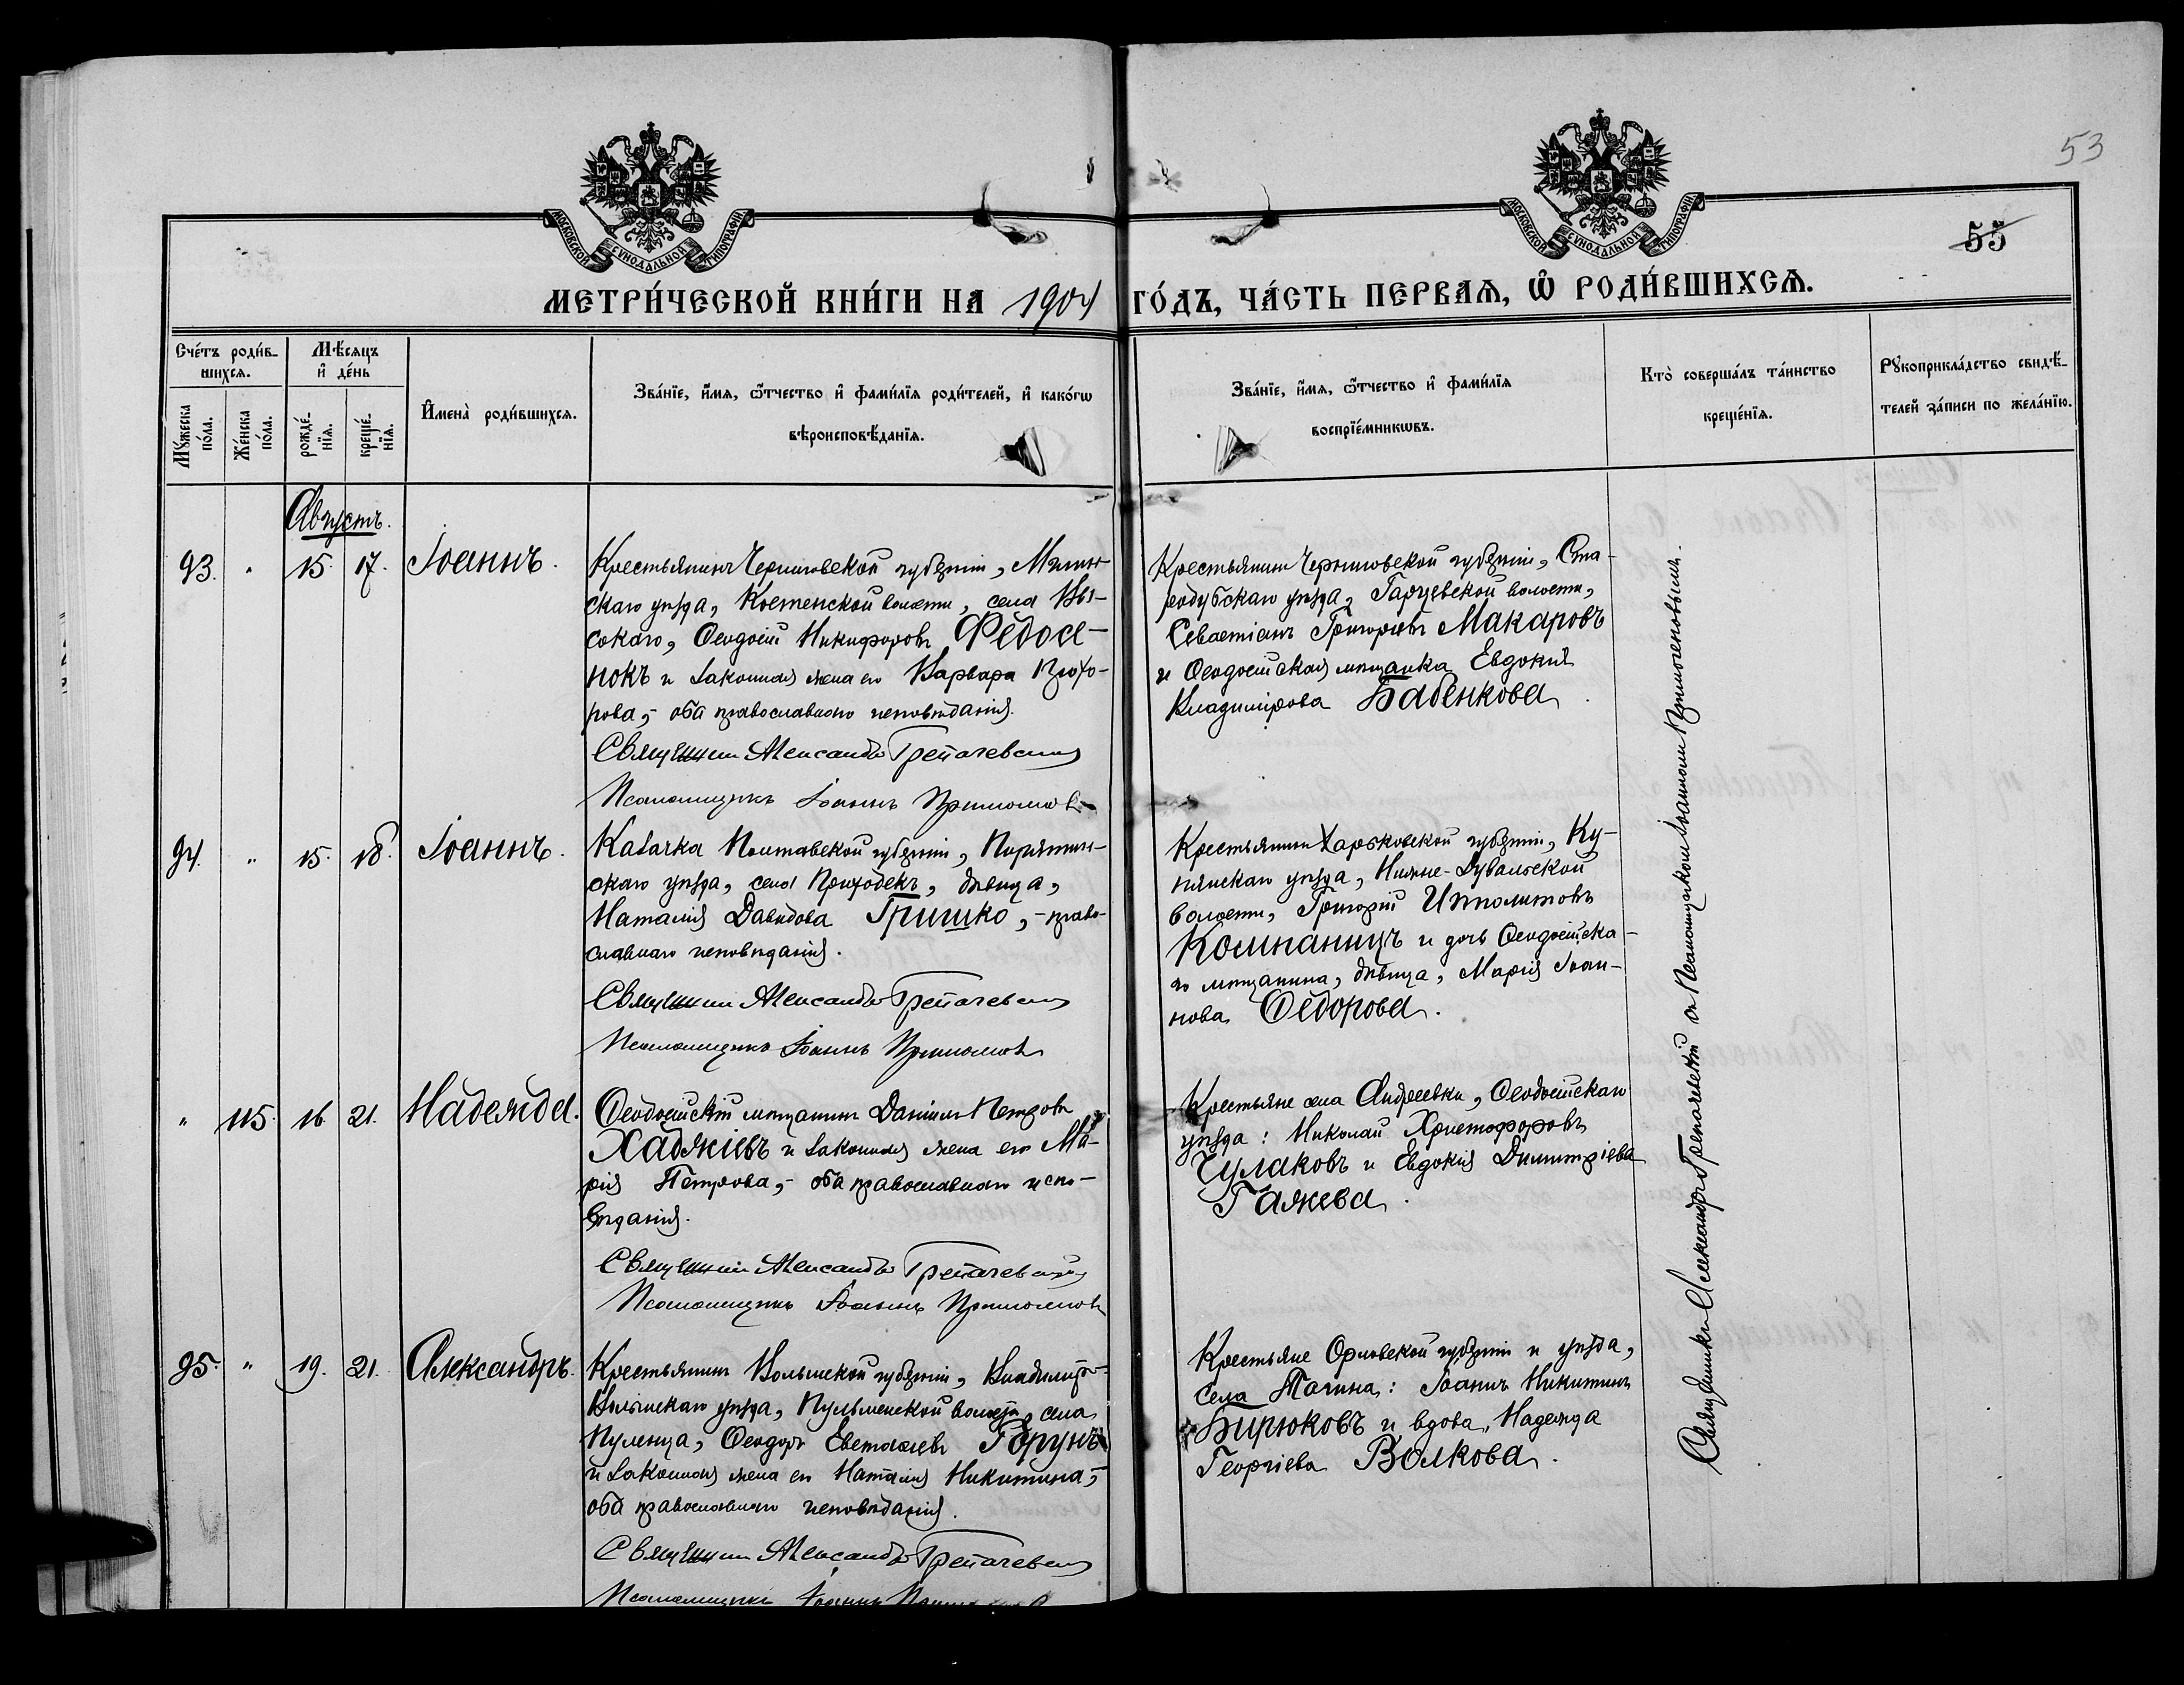 53
55
МОСКОВСКОЙ СѴНОДАЛЬНОЙ ТИПОГРАФІИ
МОСКОВСКОЙ СѴНОДАЛЬНОЙ ТИПОГРАФІИ
МЕТРИ́ЧЕСКОЙ КНИ́ГИ НА 1904 ГО́ДЪ, ЧА́СТЬ ПЕ́РВАѦ, Ѽ РОДИ́ВШИХСѦ.
Сче́тъ роди́в-
шихсѧ.
Мꙋ́жеска по́ла.
Же́нска по́ла.
Мѣ́сѧцъ
и҆ де́нь
рожде́-
нїѧ.
креще́-
нїѧ.
И҆мена̀ роди́вшихсѧ.
Зва́нїе, и҆́мѧ, ѻ҆́тчество и҆ фами́лїѧ роди́телей, и҆ како́гѡ
вѣроисповѣ́данїѧ.
Зва́нїе, и҆́мѧ, ѻ҆́тчество и҆ фами́лїѧ
воспрїе́мникѡвъ.
Кто̀ соверша́лъ та́инство
креще́нїѧ.
Рꙋкоприкла́дство свидѣ́-
телей за́писи по жела́нїю.
Августъ.
93. " 15. 17. Іоаннъ.
Крестьянинъ Черниговской губерніи, Мглин-
скаго уѣзда, Костенской волости, села Вы-
сокаго, Ѳеодосій Никифоровъ Федосе-
нокъ и законная жена его Варвара Прохо-
рова, - оба православнаго исповѣданія.
Священникъ Александръ Трепачевскій
Псаломщикъ Іоаннъ
Крестьянинъ Черниговской губерніи, Ста-
родубскаго уѣзда, Гарцевской волости,
Севастіанъ Григорьевъ Макаровъ
и Ѳеодосійская мѣщанка Евдокія
Владимірова Бабенкова.
94. " 15. 18. Іоаннъ.
Казачка Полтавской губерніи, Пирятин-
скаго уѣзда, села Приходекъ, дѣвица,
Наталія Давидова Гришко, - право-
славнаго исповѣданія.
Священникъ Александръ Трепачевскій
Псаломщикъ Іоаннъ
Крестьянинъ Харьковской губерніи, Ку-
пянскаго уѣзда, Нижне-Дувальской
волости, Григорій Ипполитовъ
Компаніецъ и дочь Ѳеодосійска-
го мѣщанина, дѣвица, Марія Іоан-
нова Ѳедорова.
" 115. 16. 21. Надежда.
Ѳеодосійскій мѣщанинъ Даніилъ Петровъ
Хаджіевъ и законная жена его Ма-
рія Петрова, - оба православнаго испо-
вѣданія.
Священникъ Александръ Трепачевскій
Псаломщикъ Іоаннъ
Крестьяне села Андреевки, Ѳеодосійскаго
уѣзда: Николай Христофоровъ
Чулаковъ и Евдокія Димитріева
Гажева.
95. " 19. 21. Александръ.
Крестьянинъ Волынской губерніи, Владиміро-
Волынскаго уѣзда, Пульменской волости, села
Пуленца, Ѳеодоръ Евстафіевъ Горунъ
и законная жена его Наталія Никитина, -
оба православнаго исповѣданія.
Священникъ Александръ Трепачевскій
Псаломщикъ Іоаннъ
Крестьяне Орловской губерніи и уѣзда,
села Тагина: Іоаннъ Никитинъ
Бирюковъ и вдова, Надежда
Георгіева Волкова.
Священникъ Александръ Трепачевскій съ Псаломщикомъ Іоанномъ